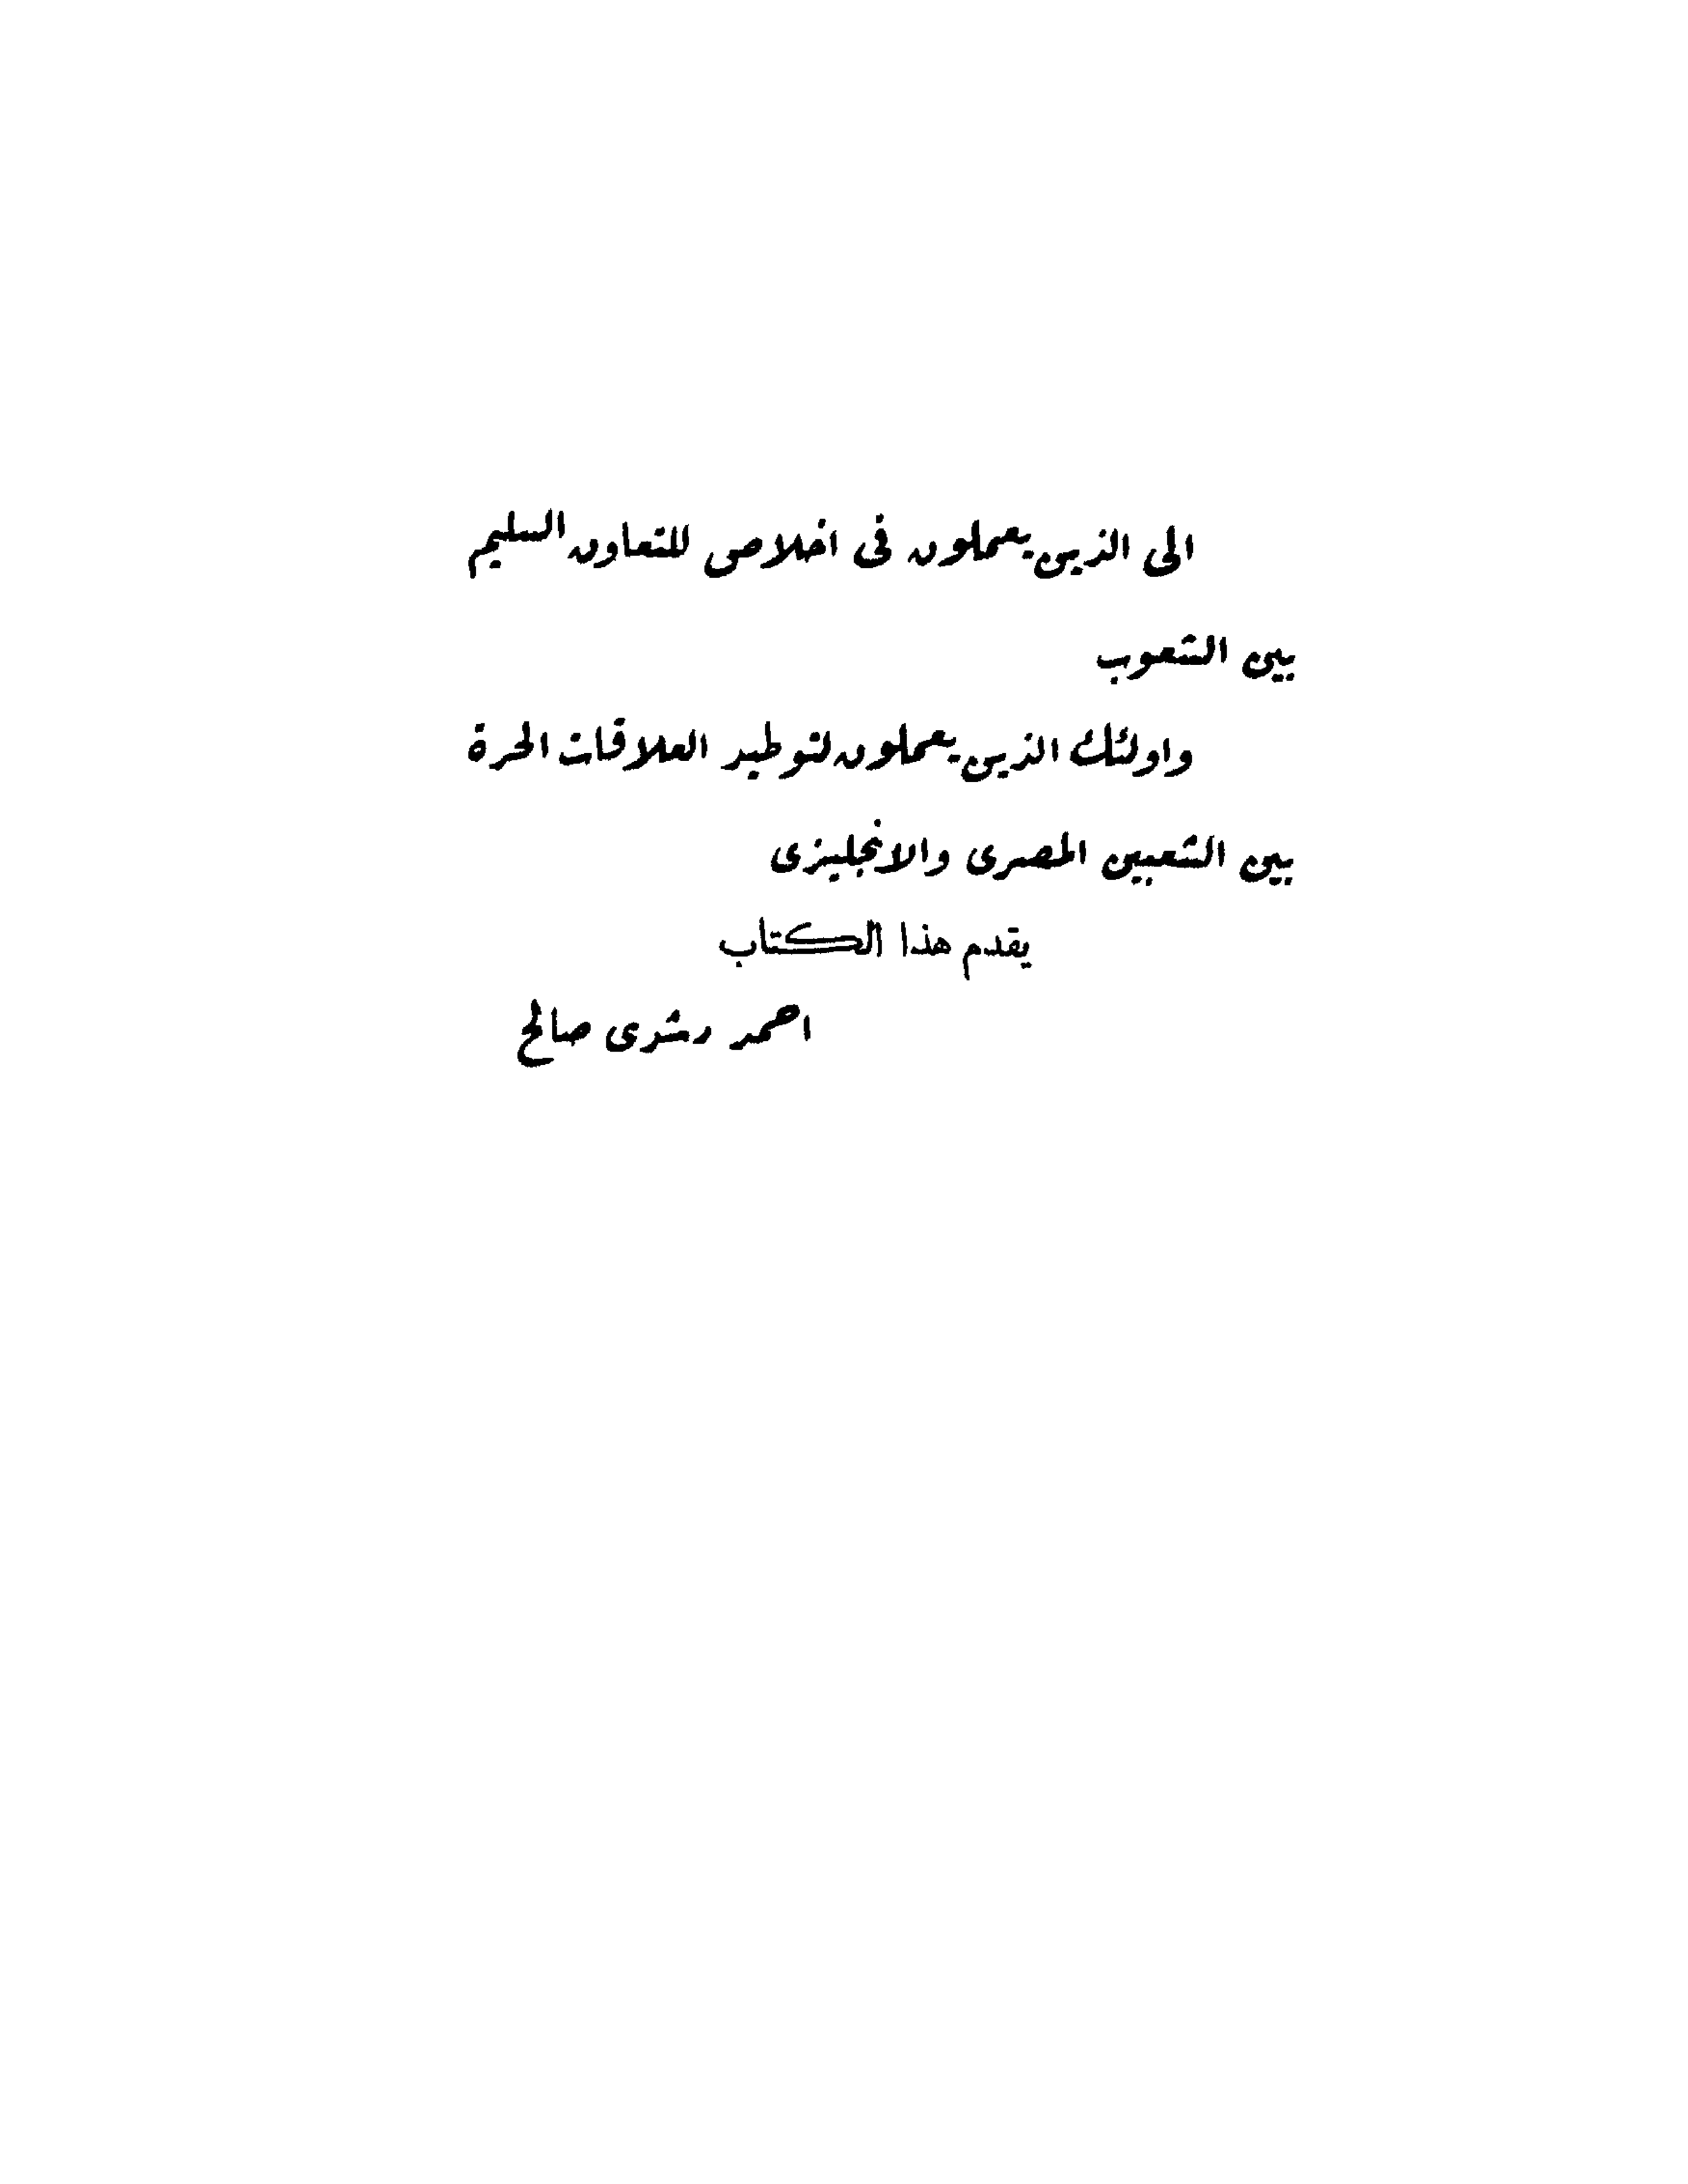 الى الذين يعملون فى اخلاص للتعاون السليم
بين الشعوب
واولئك الذين يعملون لتوطيد العلاقات الحرة
بين الشعبين المصرى والانجليزى
يقدم هذا الكتاب
احمد رشدى صالح